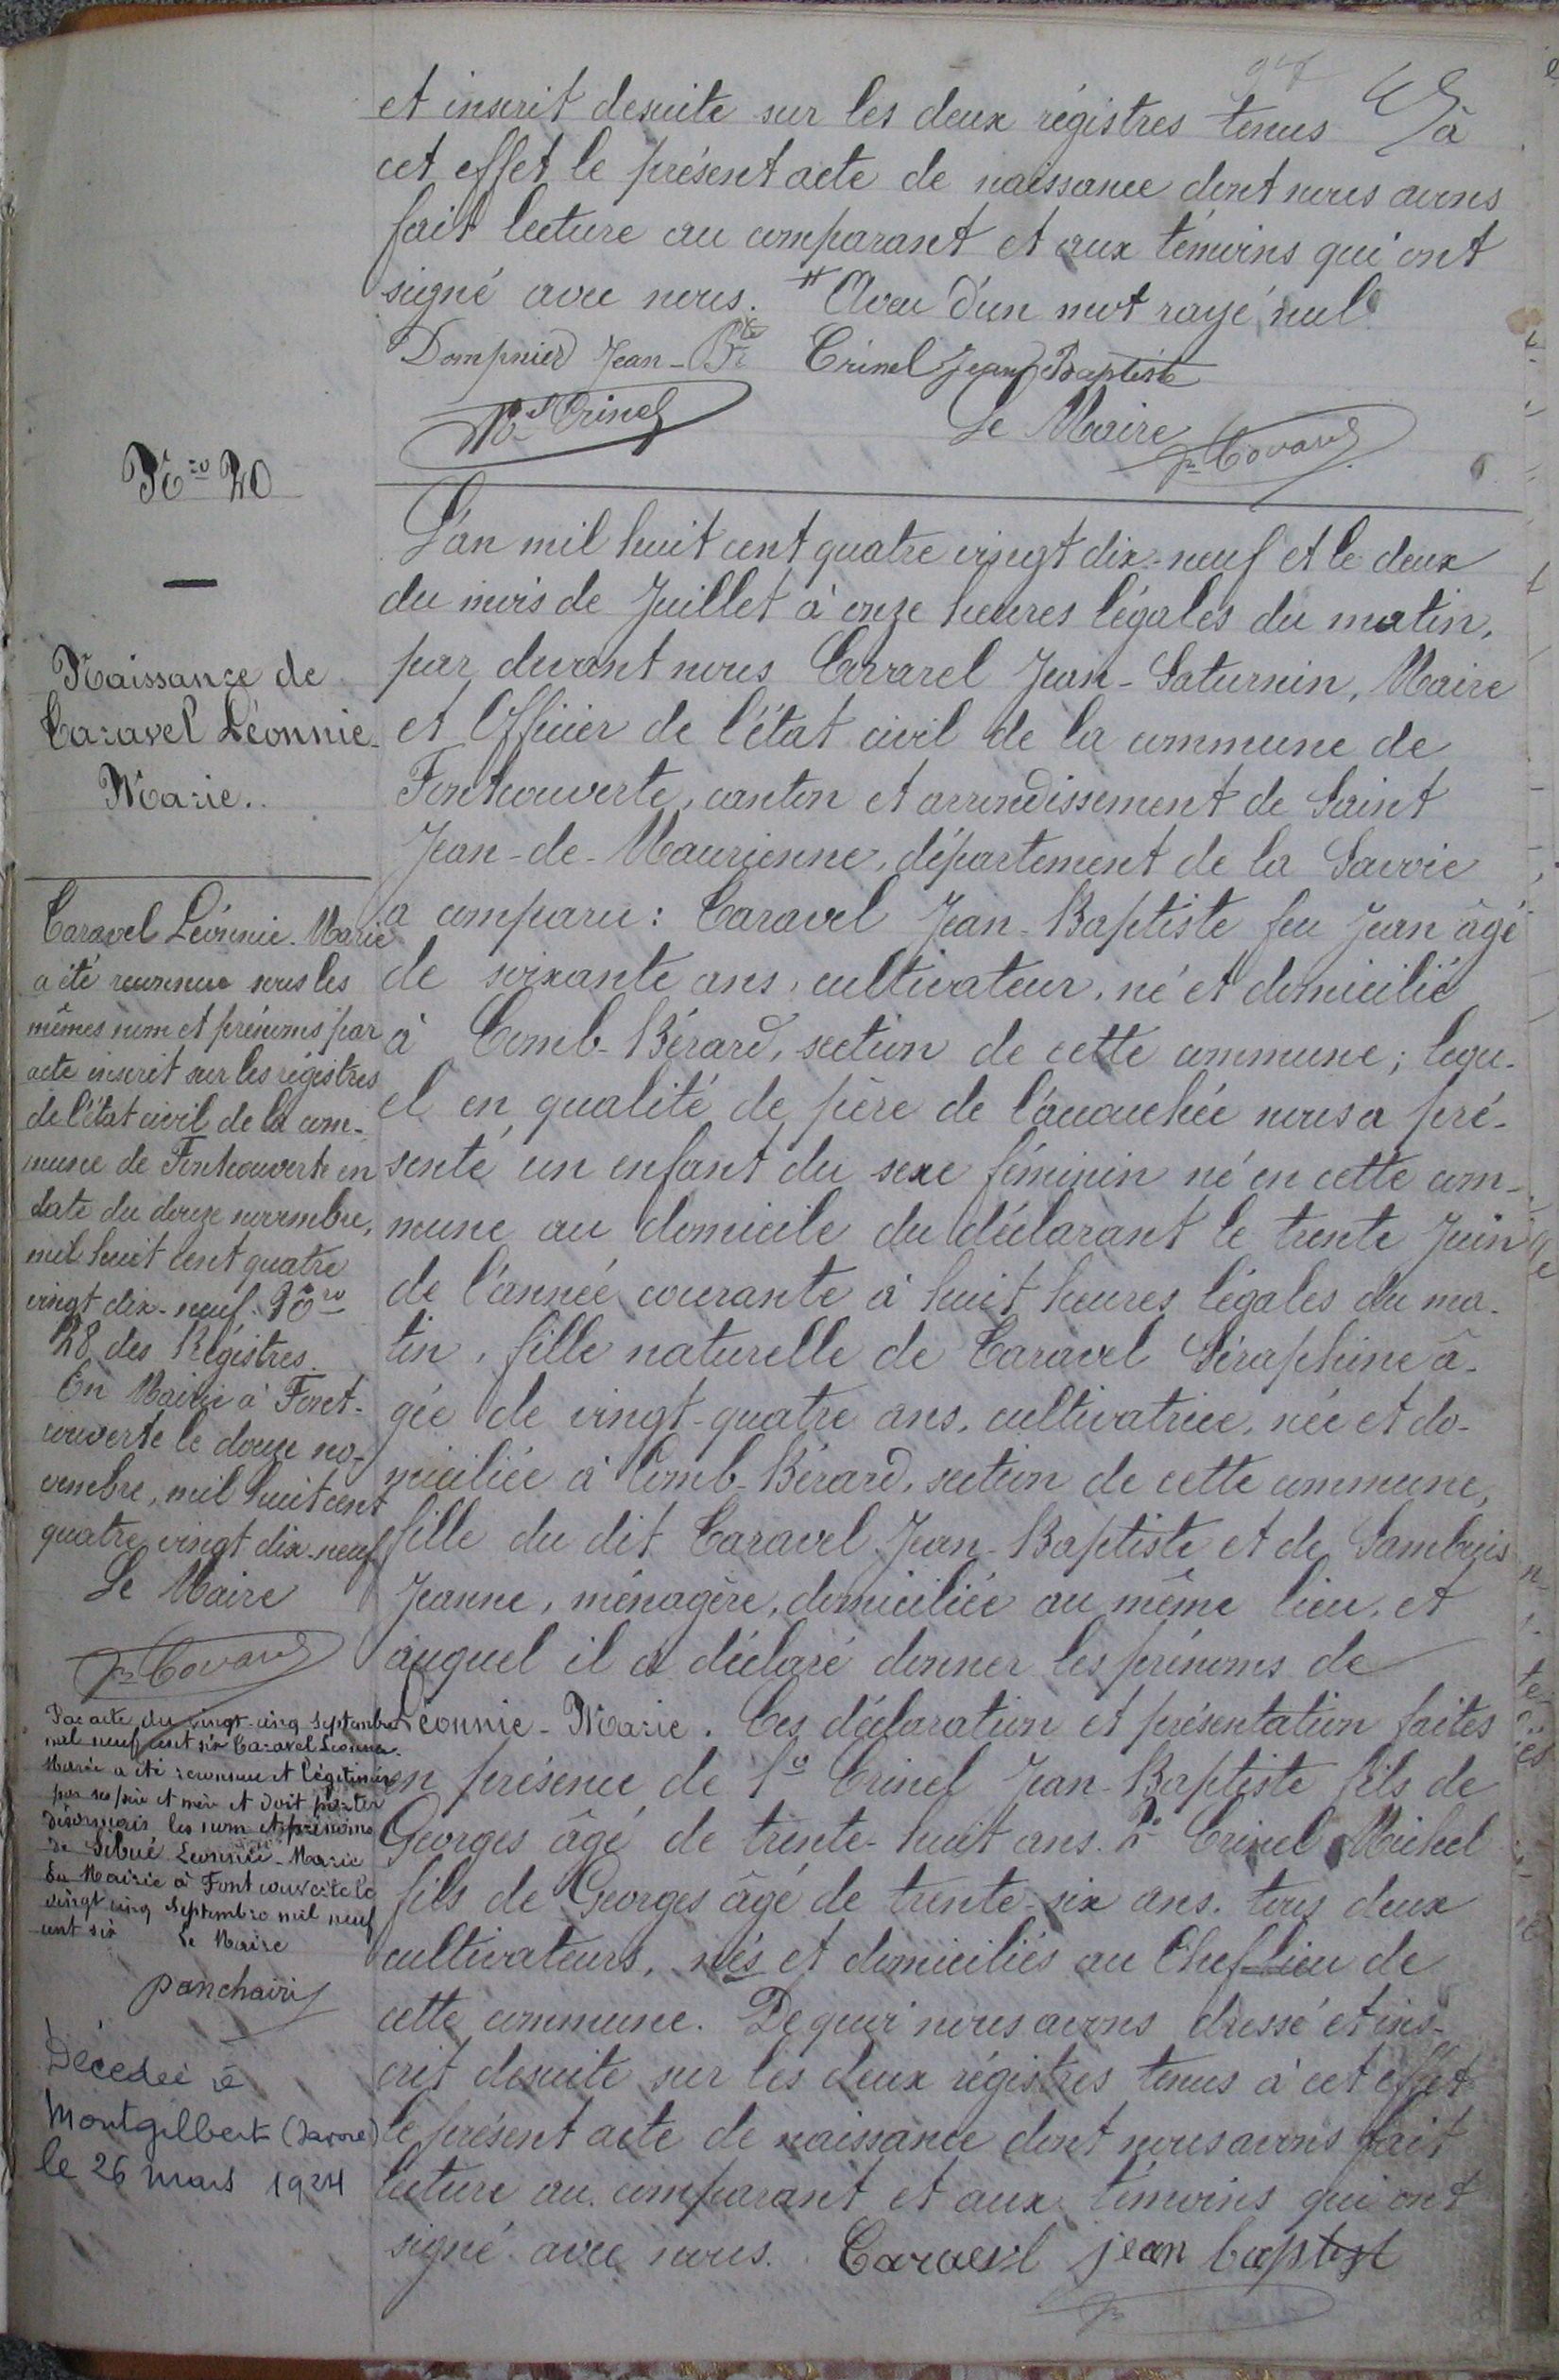 et inscrit desuite sur les deux régistres tenus à
cet effet le présent acte de naissance dont nous avons
fait lecture au comparant et aux témoins qui ont
signé avec nous. # Aveu d'un mot rayé nul
Dompnier Jean-Bte Trinel Jean Baptiste
Mel Trinel Le Maire
N:ro 20
Naissance de
Caravel Léonnie-
Marie..
L'an mil huit cent quatre vingt dix-neuf et le deux
du mois de Juillet à onze heures légales du matin,
par devant nous Jean-Saturnin, Maire
et Officier de l'état civil de la commune de
Fontcouverte, canton et arrondissement de Saint
Jean-de-Maurienne, département de la Savoie
a comparu: Caravel Jean-Baptiste feu Jean âgé
de soixante ans, cultivateur, né et domicilié
à Comb-Bérard, section de cette commune; lequ-
el en qualité de père de l'accouchée nous a pré-
senté un enfant du sexe féminin né en cette com-
mune au domicile du déclarant le trente Juin
de l'année courante à huit heures légales du ma-
tin, fille naturelle de Caravel Séraphine â-
gée de vingt-quatre ans, cultivatrice, née et do-
miciliée à Comb-Bérard, section de cette commune,
fille du dit Caravel Jean-Baptiste et de Sambuis
Jeanne, ménagère, domiciliée au même lieu, et
auquel il a déclaré donner les prénoms de
Léonnie-Marie. Ces déclaration et présentation faites
en présence de 1o Trinel Jean-Baptiste fils de
Georges âgé de trente-huit ans. 2o Trinel Michel
fils de Georges âgé de trente-six ans. tous deux
cultivateurs, nés et domiciliés au Chef-lieu de
cette commune. De quoi nous avons dressé et ins-
crit desuite sur les deux régistres tenus à cet effet
le présent acte de naissance dont nous avons fait
lecture au comparant et aux témoins qui ont
signé avec nous. Caravel jean baptist
Caravel Léonnie-Marie
a été reconnue sous les
mêmes nom et prénoms par
acte inscrit sur les régistres
de l'état civil de la com-
mune de Fontcouverte en
date du douze novembre,
mil huit cent quatre
vingt dix-neuf. No:ro
28 des Régistres.
En Mairie à Font-
couverte le douze no-
vembre, mil huit cent
quatre vingt dix-neuf
Le Maire
Par acte du vingt-cinq Septembre
mil neuf cent six Caravel Léonnie
Marie a été reconnue et légitimée
par ses père et mère et doit porter
désormais les nom et prénoms
de Sibué Léonnie-Marie
En Mairie à Fontcouverte le
vingt cinq Septembre mil neuf
cent six Le Maire
Décédée à
Montgilbert (Savoie)
le 26 mars 1924